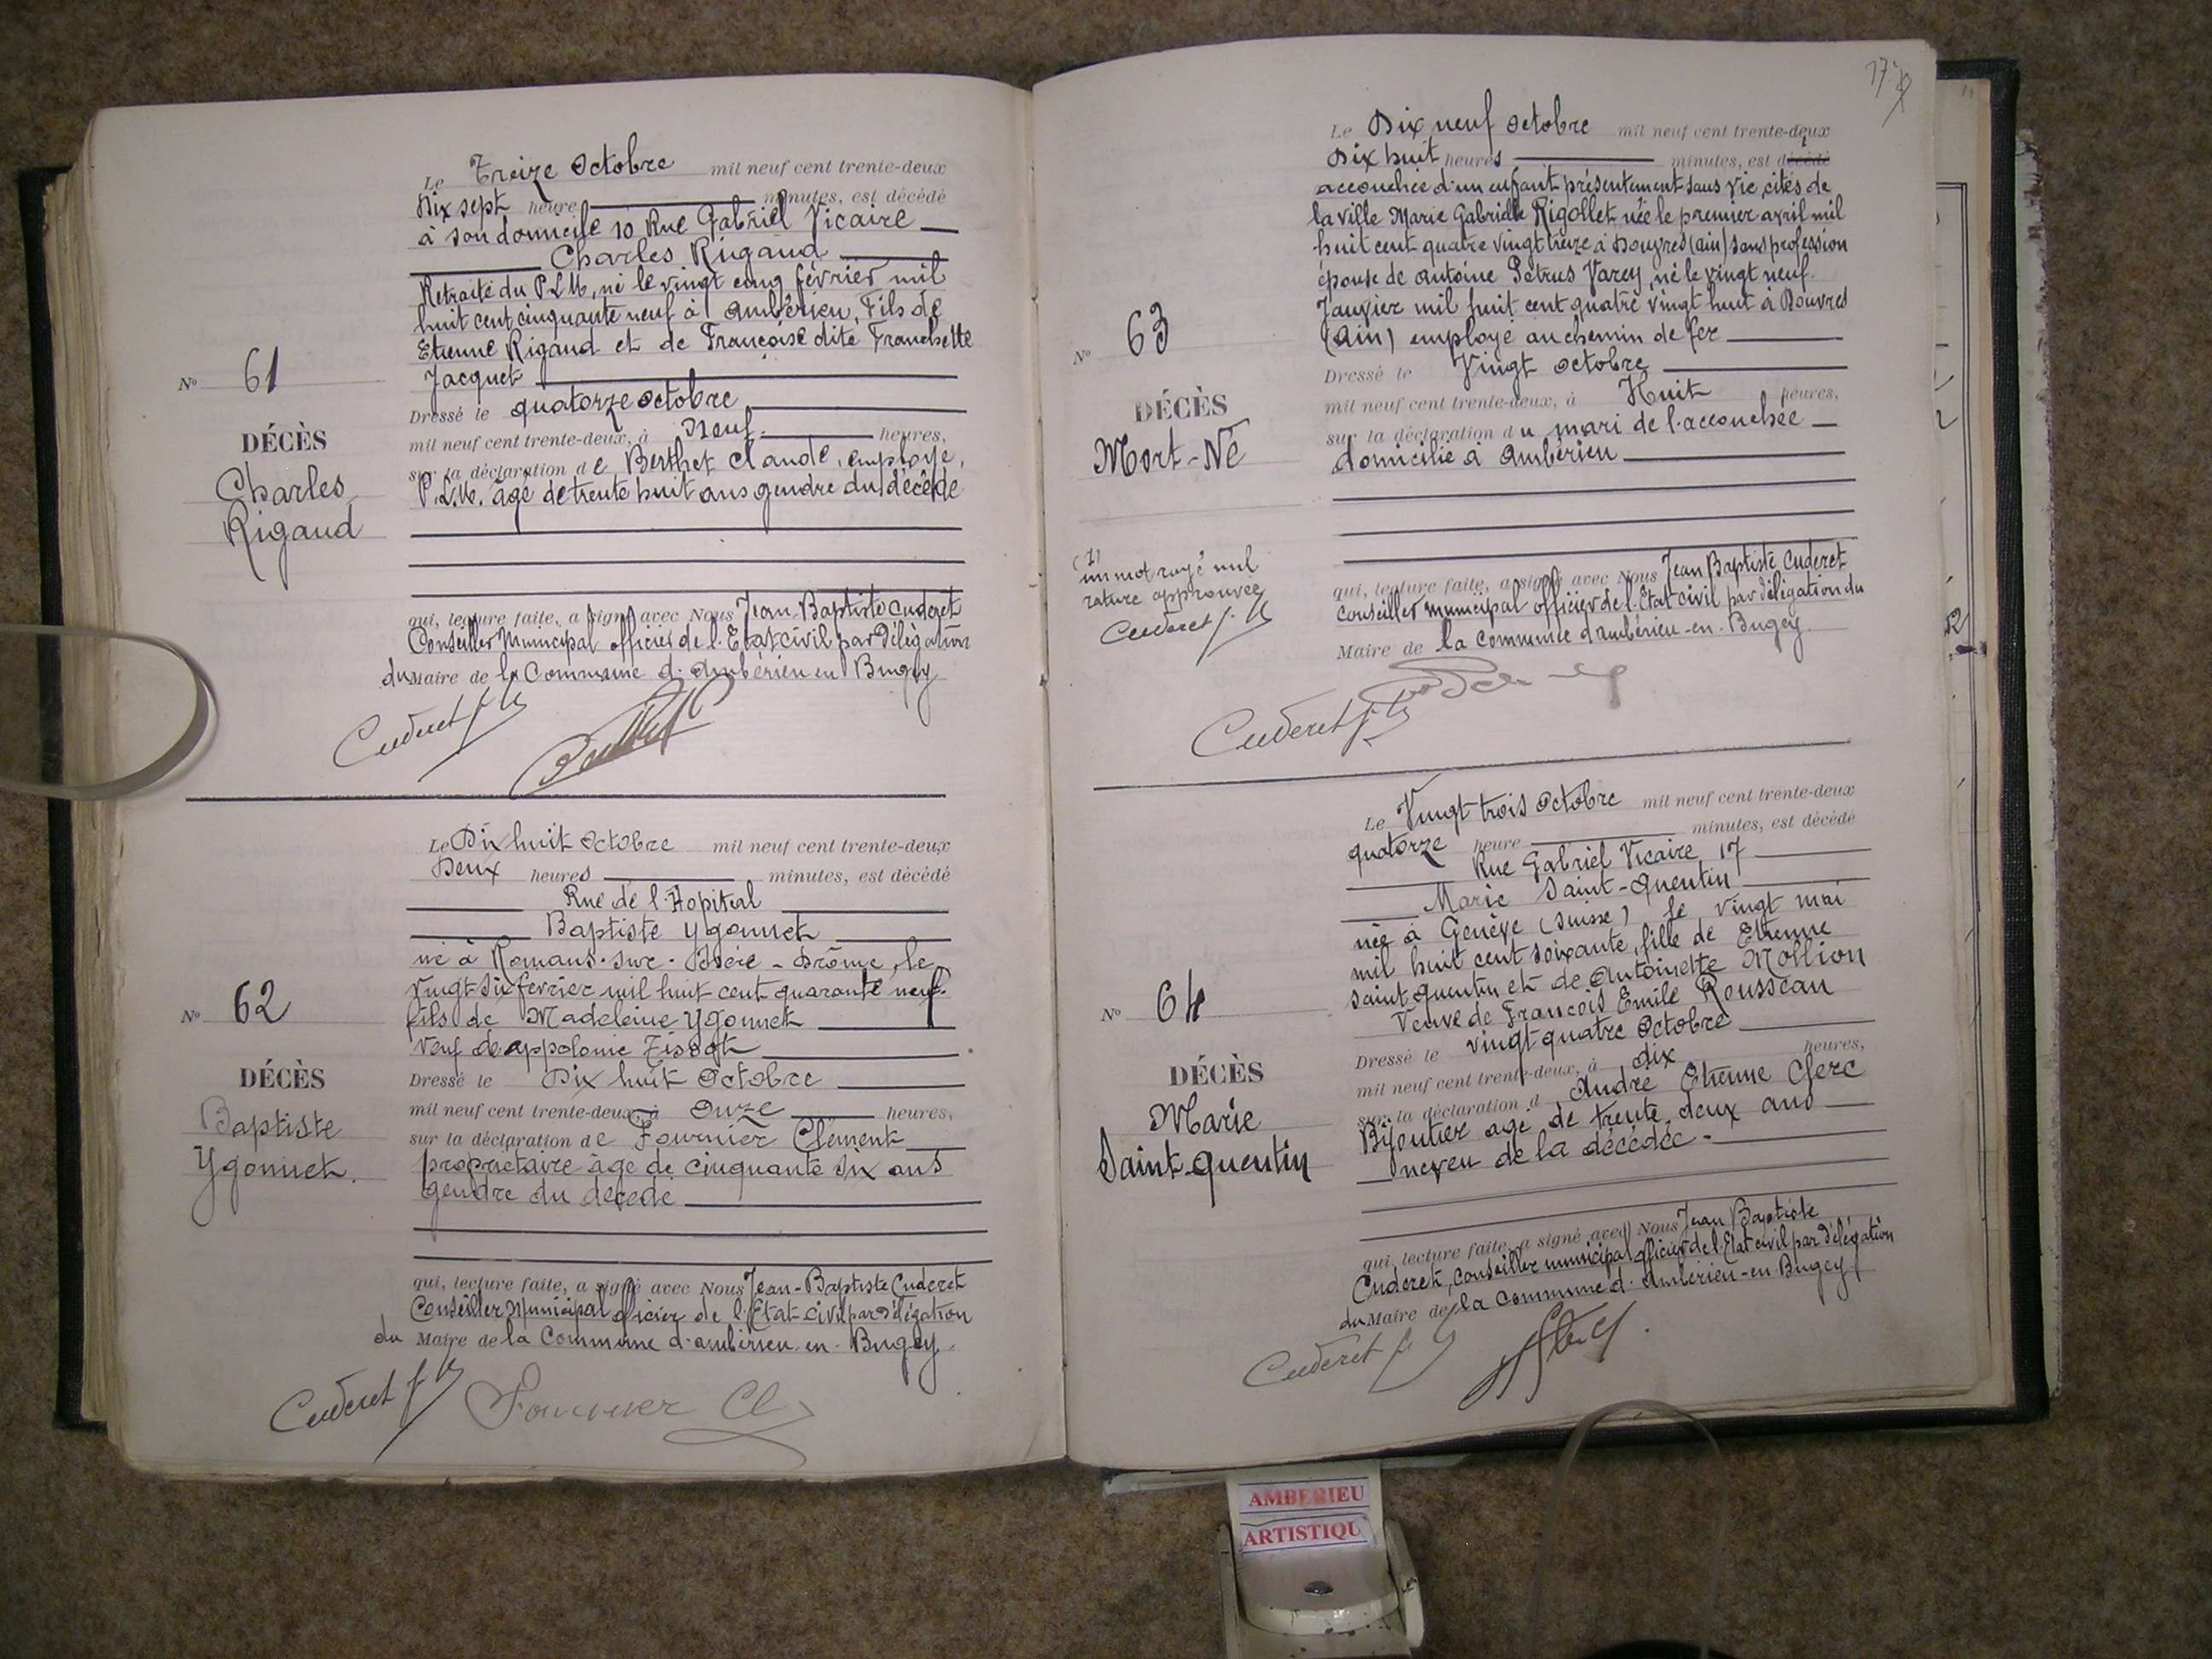 Le Treize Octobre mil neuf cent trente-deux
Dix sept heure minutes, est décédé
à son domicile 10 Rue Gabriel Vicaire
Charles Rigaud
Retraité du P.L.M., né le vingt cinq février mil
huit cent cinquante neuf à Ambérieu, Fils de
Etienne Rigaud et de Françoise dite Franchette
Jacquet
N° 61
DÉCÈS
Charles
Rigaud
Dressé le quatorze octobre
mil neuf cent trente-deux, à Neuf heures,
sur la déclaration de Berthet Claude, employé,
P.L.M. âgé de trente huit ans gendre du décédé
qui, lecture faite, a signé avec Nous Jean-Baptiste Cuderet
Conseiller Municipal officier de l'Etat civil par Délégation
du Maire de la Commune d'Ambérieu en Bugey
Cuderet
Le Dix huit Octobre mil neuf cent trente-deux
Deux heures minutes, est décédé
Rue de l'Hopital
Baptiste Ygonnet
né à Romans-sur-Isère - Drôme, le
vingt six fevrier mil huit cent quarante neuf.
fils de Madeleine Ygonnet
veuf de appolonie Tissot
N° 62
DÉCÈS
Baptiste
Ygonnet.
Dressé le Dix huit Octobre
mil neuf cent trente-deux, à Onze heures,
sur la déclaration de Fournier Clément
propriétaire âgé de cinquante six ans
gendre du décédé
qui, lecture faite, a signé avec Nous Jean-Baptiste Cuderet
Conseiller Municipal officier de l'Etat-civil par Délégation
du Maire de la Commune d'ambérieu-en-Bugey.
Cuderet Fournier Cl
Le Dix neuf Octobre mil neuf cent trente-deux
Dix huit heures minutes, est décédé
accouchée d'un enfant présentement sans vie, cités de
la ville Marie Gabrielle Rigollet née le premier avril mil
huit cent quatre vingt treize à Douvres (ain) sans profession
épouse de Antoine Petrus Varey, né le vingt neuf.
Janvier mil huit cent quatre vingt huit à Douvres
(Ain) employé au chemin de fer
N° 63
DÉCÈS
Mort-Né
Dressé le Vingt octobre
mil neuf cent trente-deux, à Huit heures,
sur la déclaration du mari de l'accouchée
domicilié à Ambérieu
(1)
un mot rayé nul
rature approuvée
Cuderet
qui, lecture faite, a signé avec Nous Jean Baptiste Cuderet
conseiller municipal officier de l'Etat civil par délégation du
Maire de la Commune d'ambérieu-en-Bugey
Cuderet
Le Vingt trois Octobre mil neuf cent trente-deux
quatorze heure minutes, est décédé
Rue Gabriel Vicaire 17
Marie Saint-Quentin
née à Genève (Suisse) le vingt mai
mil huit cent soixante, fille de Etienne
Saint quentin et de Antoinette Mollion
Veuve de François Emile Rousseau
N° 64
DÉCÈS
Marie
Saint-quentin
Dressé le vingt quatre Octobre
mil neuf cent trente-deux, à dix heures,
sur la déclaration d André Etienne Clerc
Bijoutier âgé de trente deux ans
neveu de la décédée.
qui, lecture faite, a signé avec Nous Jean Baptiste
Cuderet, conseiller municipal officier de l'Etat civil par délégation
du Maire de la commune d'Ambérieu-en-Bugey
Cuderet
AMBERIEU
ARTISTIQU